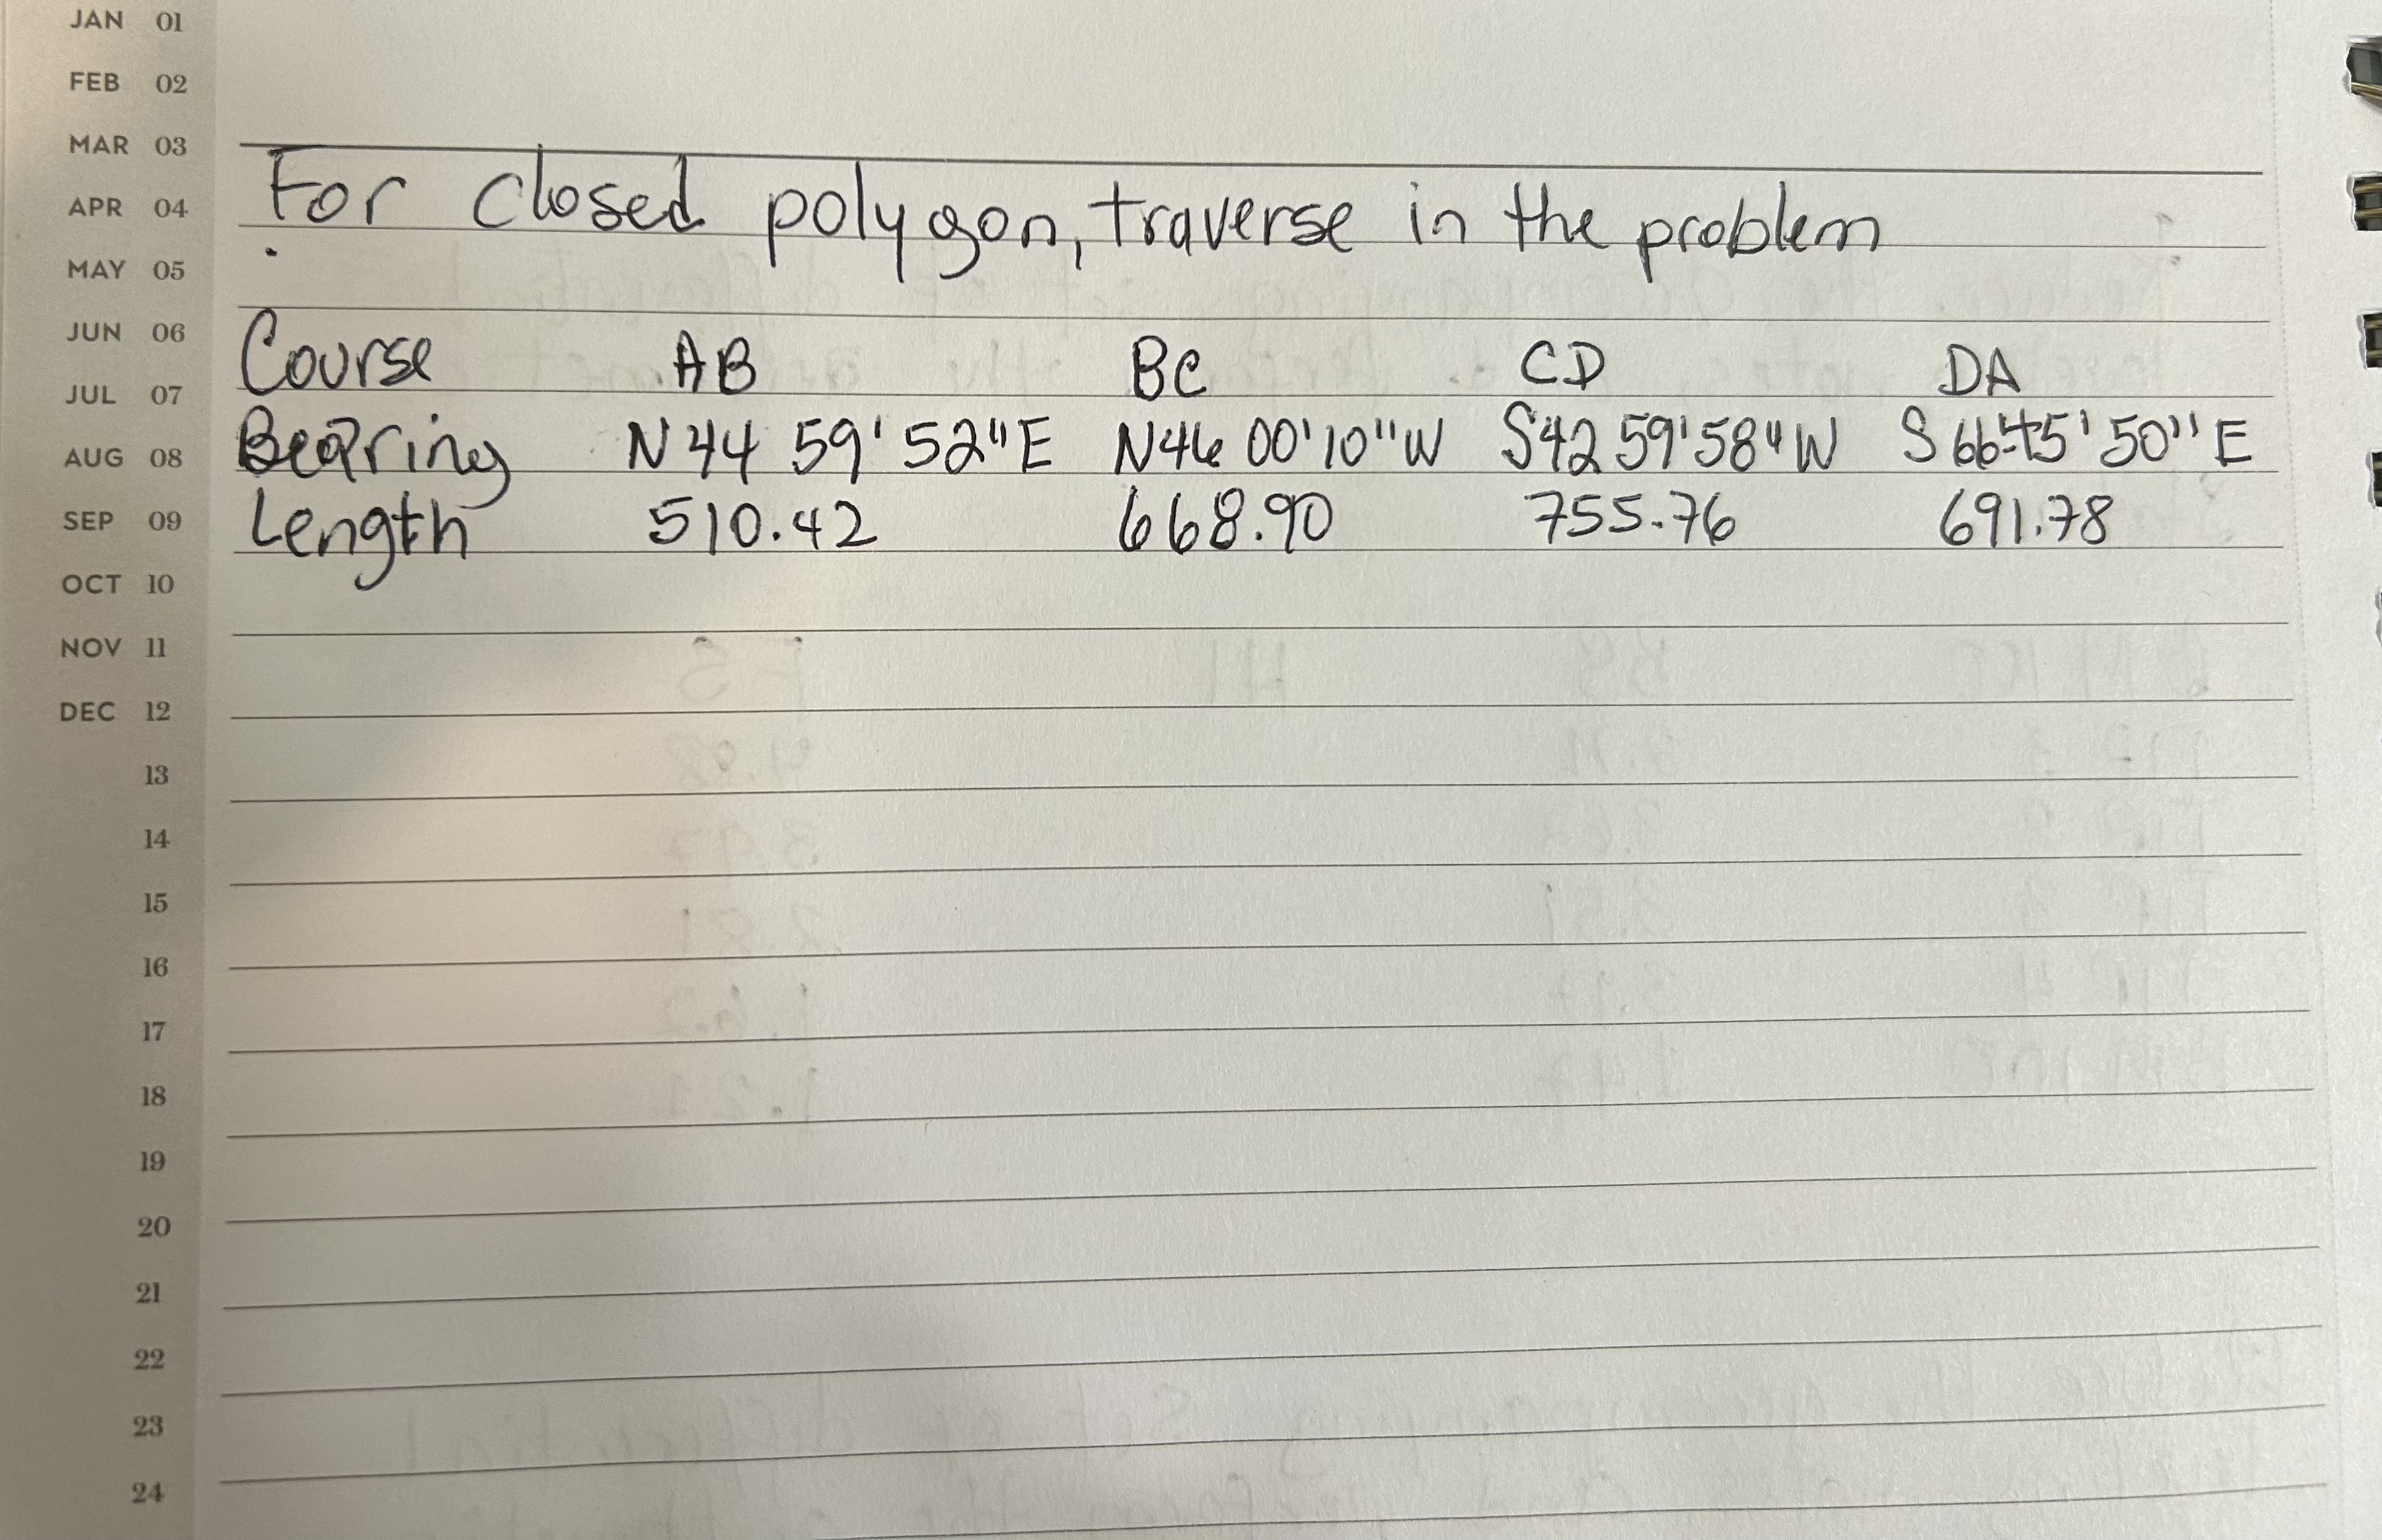 JAN 01
FEB 02
MAR 03
APR 04
MAY 05
JUN 06
JUL 07
AUG 08
SEP 09
OCT 10
NOV 11
DEC 12
13
14
15
16
17
18
19
20
21
22
23
24
For closed polygon, traverse in the problem
Course AB BC CD DA
Bearing N 44 59' 52" E N46 00'10" W S42 59'58" W S 66 45' 50" E
Length 510.42 668.90 755.76 691.78